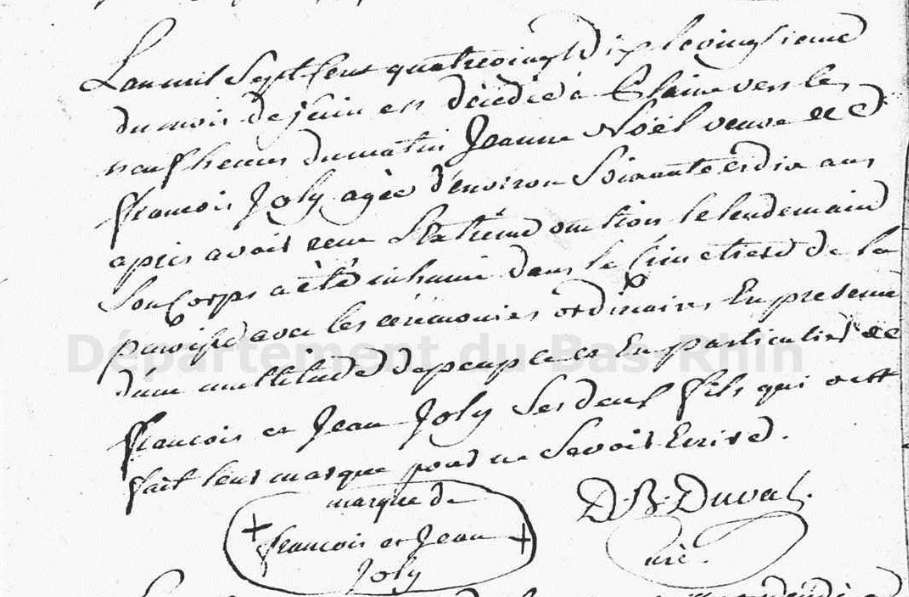 L'an mil Sept Cent quatrevingtdix le vingtieme
du mois de juin est décédée à Plaine vers les
neuf heures du matin Jeanne Noël veuve de
françois Joly agée d'environ Soixante et dix ans
après avoir reçu l'extrème onction le lendemain
Son Corps a été inhumé dans le Cimetiere de la
paroisse avec les cérémonies ordinaires En presence
d'une multitude de peuple et En particulier de
françois et Jean Joly Ses deux fils qui ont
fait leur marque pour ne Savoir Ecrire.
marque de
françois et Jean
Joly
D. B. Duval.
curé.
Département du Bas-Rhin